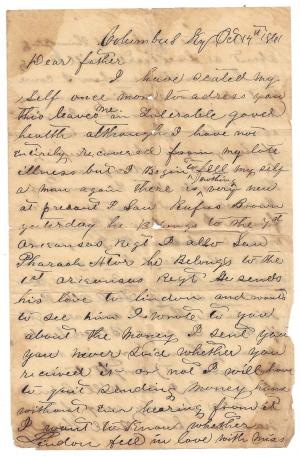 Columbus Ky Oct 14th 1861
Dear father
I have seated my
self once more to adress you
this leaves me in tolerable good
health although I have not
entirely recovered from my late
illness but I Begin to fell my self
a man again there is nothing very new
at present I Saw Rufus Brown
yesterday he Belongs to the
Arkansas Regt I allso Saw
Pharaoh he Belongs to the
1st Arkansas Regt He sends
his love to lindon and wants
to see him I wrote to you
about the Money I sent you
you never Said whether you
received it or not I will have
to quit sending Money home
without ever hearing from it
I want to Know whether
Lindon fell in love with Miss